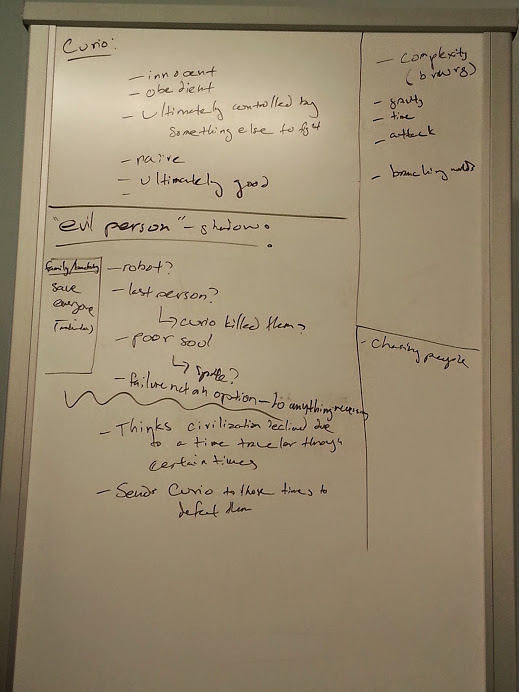 Curio:
- innocent
- obedient
- ultimately controlled by
something else to fight
- naive
- ultimately good
-
"evil person" - shadow:
family/
save
everyone
- robot?
- last person?
↳ curio killed them?
- poor soul
↳ ?
- failure not an option - to anything necessary
- Thinks civilization declined due
to a time traveler through
certain times
- Sends Curio to those times to
defeat them
- complexity
- gravity
- time
- attack
- branching worlds
- chasing people